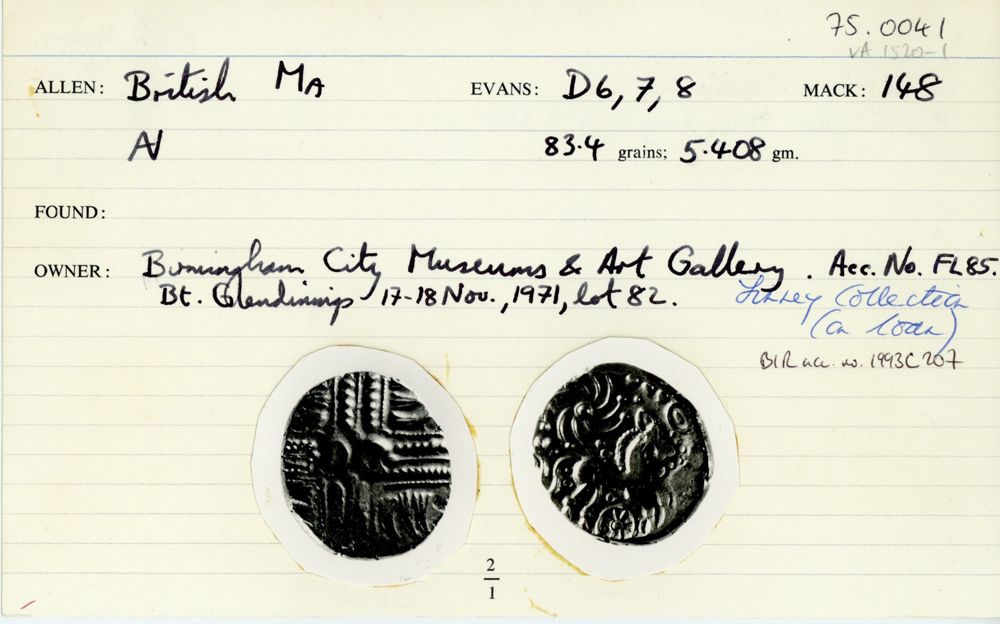 75.0041
VA 1520-1
ALLEN: British MA EVANS: D6, 7, 8 MACK: 148
AV 83.4 grains; 5.408 gm.
FOUND:
OWNER: Birmingham City Museums & Art Gallery. Acc. No. FL85.
Bt. Glendinings 17-18 Nov., 1971, lot 82. Finney Collection
(on loan)
BIR acc. no. 1993C207
2
1